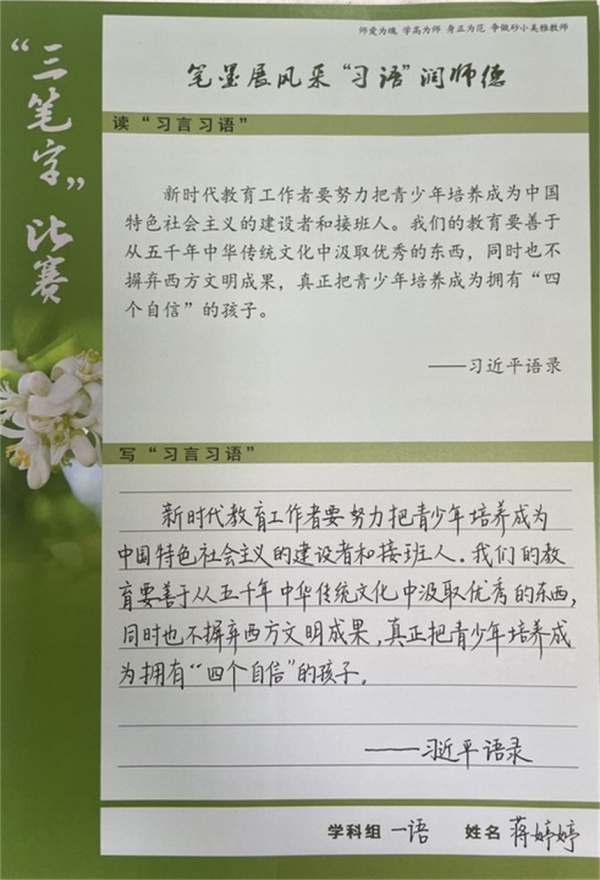 师爱为魂 学高为师 身正为范 争做砂小美雅教师
“三笔字”比赛
笔墨展风采“习语”润师德
读“习言习语”
新时代教育工作者要努力把青少年培养成为中国
特色社会主义的建设者和接班人。我们的教育要善于
从五千年中华传统文化中汲取优秀的东西，同时也不
摒弃西方文明成果，真正把青少年培养成为拥有“四
个自信”的孩子。
——习近平语录
写“习言习语”
新时代教育工作者要努力把青少年培养成为
中国特色社会主义的建设者和接班人。我们的教
育要善于从五千年中华传统文化中汲取优秀的东西，
同时也不摒弃西方文明成果，真正把青少年培养成
为拥有“四个自信”的孩子。
——习近平语录
学科组 一语 姓名 蒋婷婷